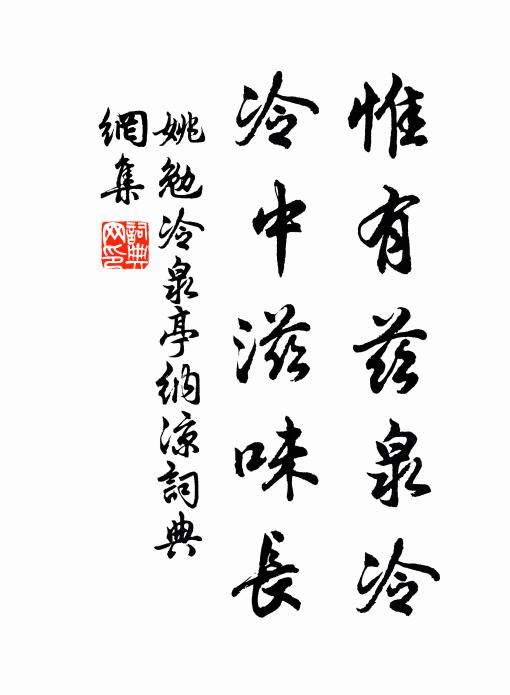 惟有茲泉冷
冷中滋味長
姚勉冷泉亭納涼詞典
網集
詞典
网印